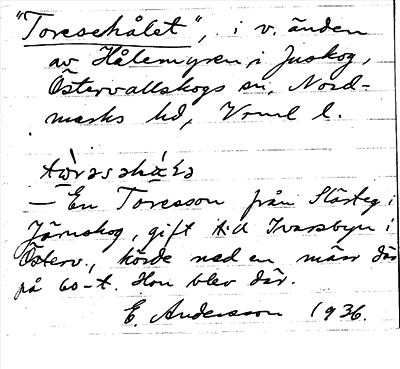 "Toresehålet", i v. änden
av Hålemyren, i Juskog,
Östervallskogs sn, Nord-
marks hd, Vrml l.
tòrəsəhɑ̀ɫə
— En Toresson från Slärteg i
Järnskog, gift t.d Ivarsbyn i
Österv., körde ned en märr där
på 60-t. Hon blev där.
E. Andersson 1936.